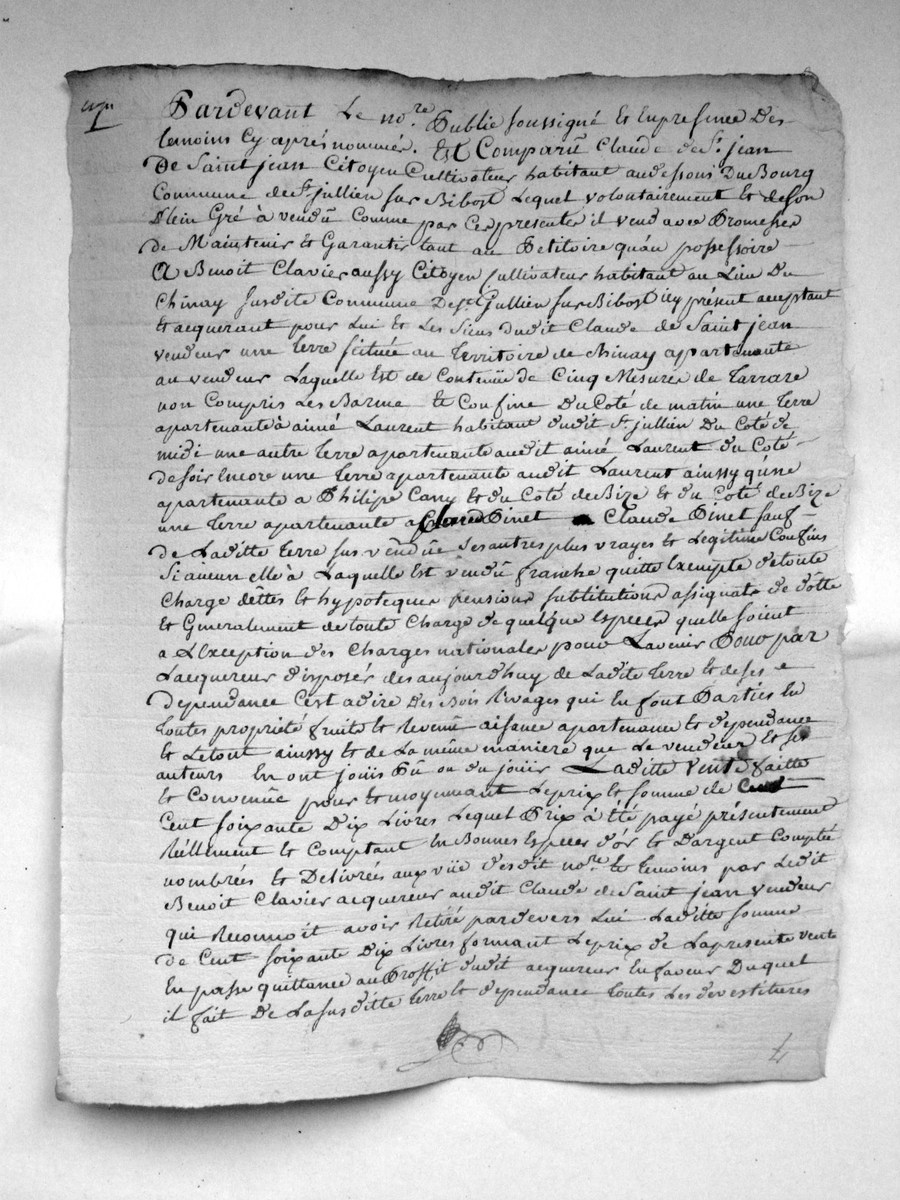 Pardevant Le no.re Publie soussigné et en presence Des
temoins Cy après nommés. Est Comparû Claude de St. jean
De Saint jean Citoyen Cultivateur habitant audessous Du Bourg
Commune de St jullien sur Bibost Lequel volontairement et de son
Plein Gré à vendû Comme par Ces presentes il vend avec Promesses
de Maintenir et Garantir tant au Petitoire quau possessoire
A Benoit Clavier aussy Citoyen Cultivateur habitant au Lieu Du
Chinay susdite Commune De St Gullien sur Bibost icy présent aceptant
et acquerant pour Lui et Les Siens dudit Claude de Saint jean
vendeur une terre scituée au territoire de Chinay appartenante
au vendeur Laquelle Est de Contenüe de Cinq Mesures de Tarrare
non Compris Les Barme et Confine Du Coté de matin une terre
apartenante à aimé Laurent habitant dudit St. jullien Du Coté de
midi une autre terre apartenante audit aimé Laurent du Coté
de soir Encore une terre apartenante audit Laurent ainssy qune
apartenante a Philipe Cany et du Coté de Bize et du Coté de Bize
une terre apartenante a Pinet Claude Pinet sauf
de Laditte terre sus vendüe Ses autres plus vrayes et Legitime Confins
Si aucun elle à Laquelle Est vendû franche quitte Exempte de toute
Charge dettes et hypoteques pensions subtitutions assignats de dotte
et Generalement de toute Charge de quelque Especes quelle soient
a LException des Charges nationales pour Lavenir Pour par
Lacquereur disposés des aujourdhuy de Ladite terre et de ses
dependance Cest adire Des Bois Rivages qui En font Parties En
toutes propriété fruits et Revenû aisance apartenance et dependance
et Letout ainssy et de La même maniere que Le vendeur et ses
auteurs En ont joüis Pû ou du joüir Laditte vente faitte
et Convenüe pour et moyennant Leprix et somme de
Cent soixante Dix Livres Lequel Prix à été payé présentement
Réellement et Comptant En Bonnes Especes d'or et Dargent Comptée
nombrées et Delivrées aux vüe desdit nore. et temoins par Ledit
Benoit Clavier acquereur audit Claude de Saint jean vendeur
qui Reconnoit avoir Retiré pardevers Lui Laditte somme
de Cent soixante Dix Livres formant Leprix de Lapresente vente
En passe quittance au Proffit dudit acquereur En faveur Duquel
il fait De Lasusditte terre et dependance toutes Les devestitures